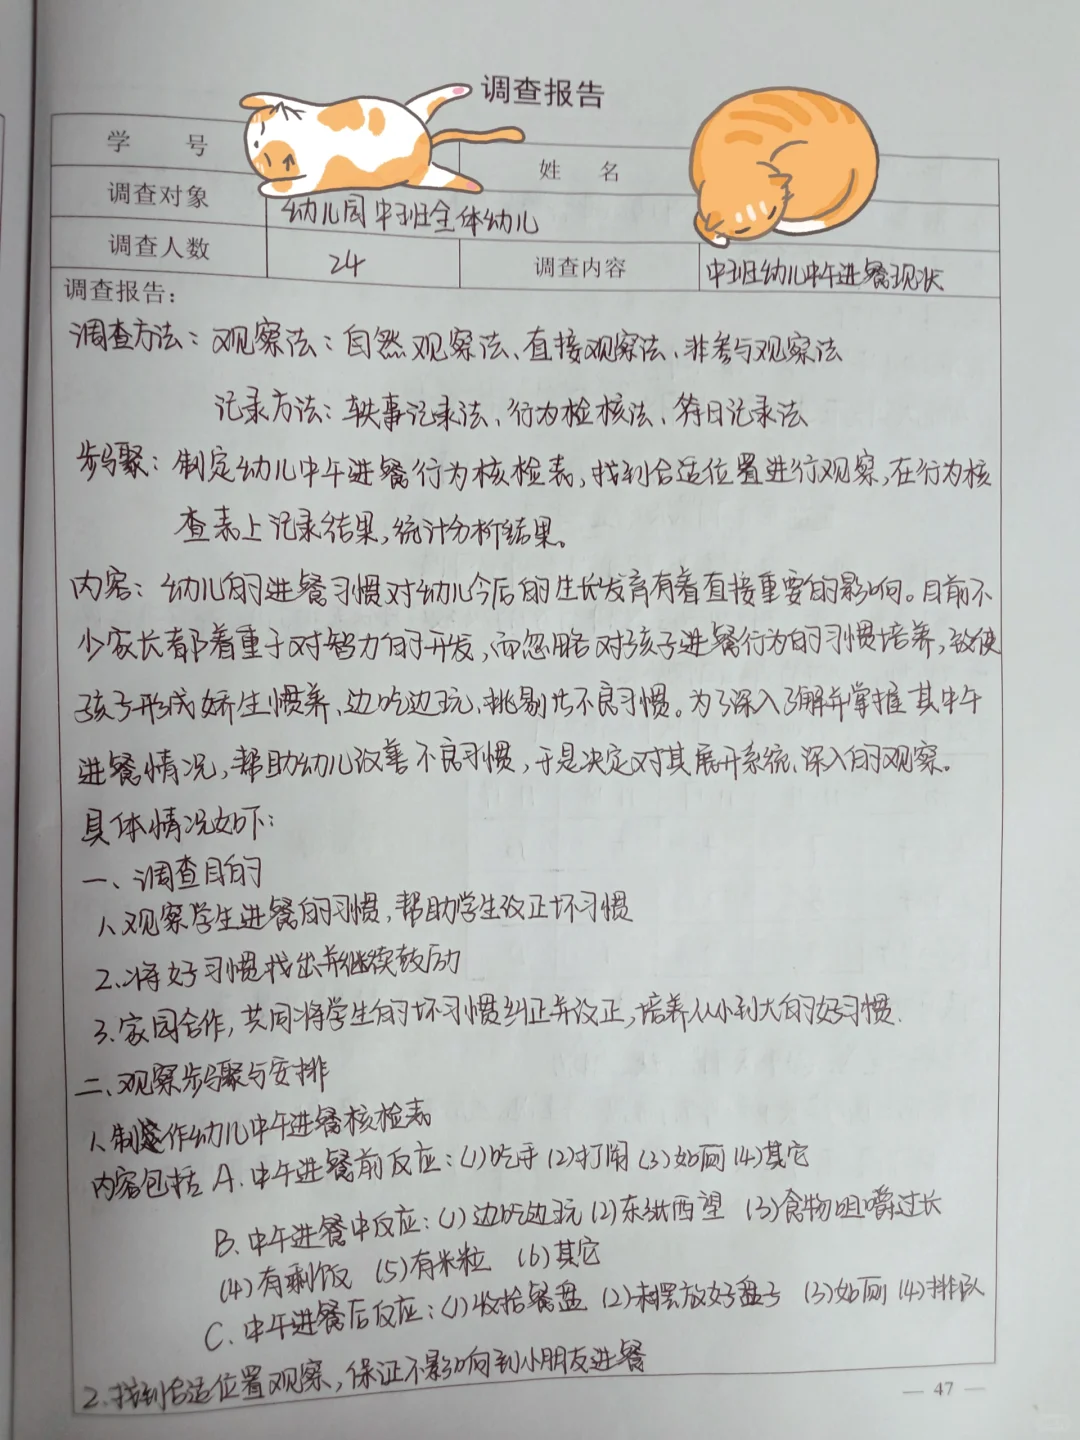 调查报告
学 号 姓 名
调查对象 幼儿园中班全体幼儿
调查人数 24 调查内容 中班幼儿中午进餐现状
调查报告:
调查方法:观察法:自然观察法、直接观察法、非参与观察法
记录方法:轶事记录法、行为检核法、符日记录法
步骤:制定幼儿中午进餐行为核检表,找到合适位置进行观察,在行为核
查表上记录结果,统计分析结果。
内容:幼儿的进餐习惯对幼儿今后的生长发育有着直接重要的影响。目前不
少家长都着重于对智力的开发,而忽略对孩子进餐行为的习惯培养,致使
孩子形成娇生惯养、边吃边玩、挑剔等不良习惯。为了深入了解并掌握其中午
进餐情况,帮助幼儿改善不良习惯,于是决定对其展开系统、深入的观察。
具体情况如下:
一、调查目的
1、观察学生进餐的习惯,帮助学生改正坏习惯
2、将好习惯找出并继续鼓励
3、家园合作,共同将学生的坏习惯纠正并改正,培养从小到大的好习惯.
二、观察步骤与安排
1、制作幼儿中午进餐核检表
内容包括 A、中午进餐前反应:(1)吃手 (2)打闹 (3)如厕 (4)其它
B、中午进餐中反应:(1)边吃边玩 (2)东张西望 (3)食物咀嚼过长
(4)有剩饭 (5)有米粒 (6)其它
C、中午进餐后反应:(1)收拾餐盘 (2)未摆放好盘子 (3)如厕 (4)排队
2、找到合适位置观察,保证不影响到小朋友进餐
— 47 —